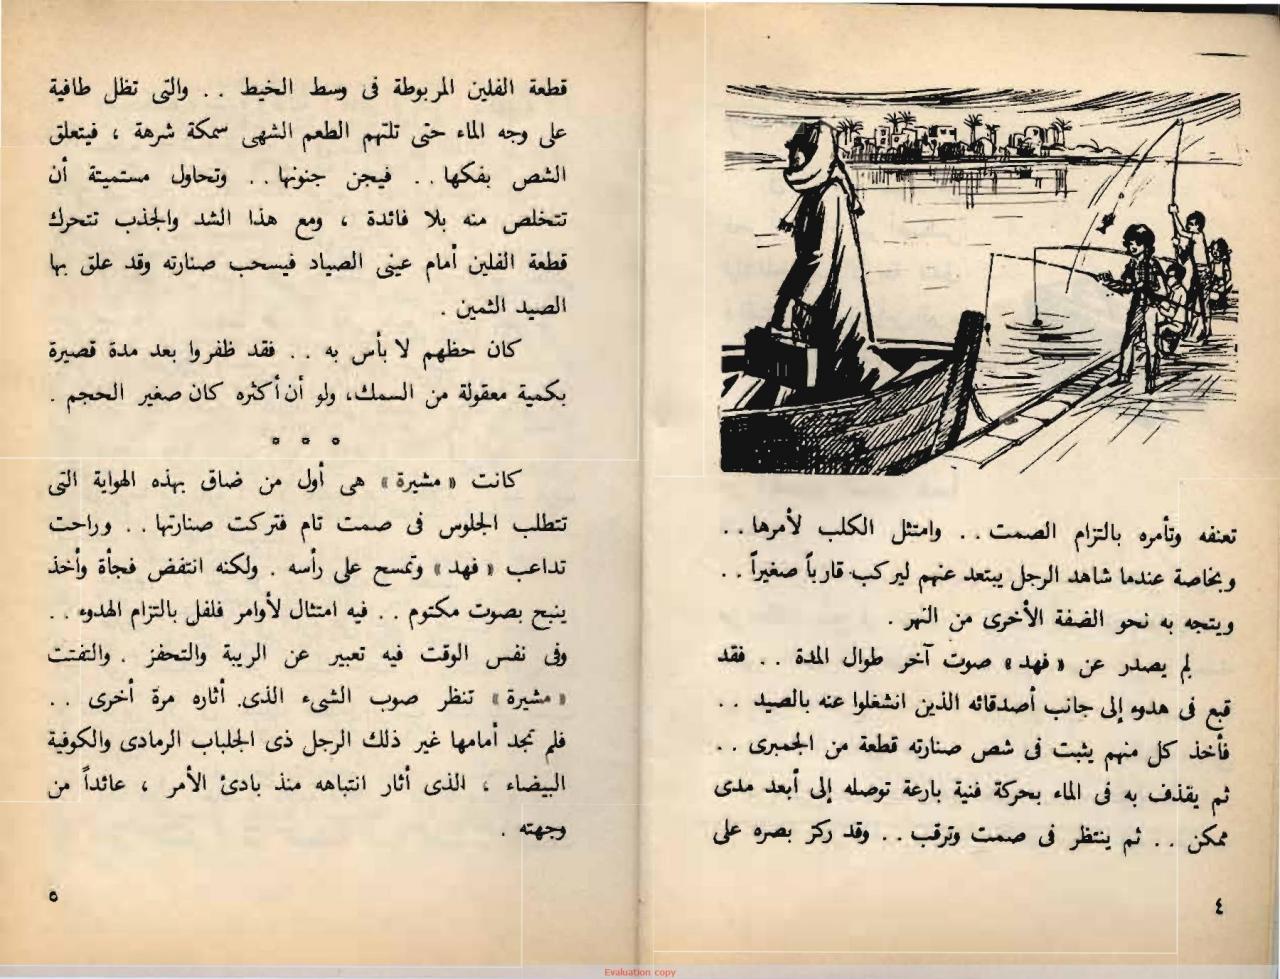 تعنفه وتأمره بالتزام الصمت . . وامتثل الكلب لأمرها . .
وبخاصة عندما شاهد الرجل يبتعد عنهم ليركب قارباً صغيراً . .
ويتجه به نحو الضفة الأخرى من النهر .
لم يصدر عن « فهد » صوت آخر طوال المدة . . فقد
قبع فى هدوء إلى جانب أصدقائه الذين انشغلوا عنه بالصيد . .
فأخذ كل منهم يثبت فى شص صنارته قطعة من الجمبرى . .
ثم يقذف به فى الماء بحركة فنية بارعة توصله إلى أبعد مدى
ممكن . . ثم ينتظر فى صمت وترقب . . وقد ركز بصره على
٤
قطعة الفلين المربوطة فى وسط الخيط . . والتى تظل طافية
على وجه الماء حتى تلتهم الطعم الشهى سمكة شرهة ، فيتعلق
الشص بفكها . . فيجن جنونها . . وتحاول مستميتة أن
تتخلص منه بلا فائدة ، ومع هذا الشد والجذب تتحرك
قطعة الفلين أمام عينى الصياد فيسحب صنارته وقد علق بها
الصيد الثمين .
كان حظهم لا بأس به . . فقد ظفروا بعد مدة قصيرة
بكمية معقولة من السمك، ولو أن أكثره كان صغير الحجم .
* * *
كانت « مشيرة » هى أول من ضاق بهذه الهواية التى
تتطلب الجلوس فى صمت تام فتركت صنارتها . . وراحت
تداعب « فهد » وتمسح على رأسه . ولكنه انتفض فجأة وأخذ
ينبح بصوت مكتوم . . فيه امتثال لأوامر فلفل بالتزام الهدوء . .
وفى نفس الوقت فيه تعبير عن الريبة والتحفز . والتفتت
« مشيرة » تنظر صوب الشىء الذى أثاره مرة أخرى . .
فلم تجد أمامها غير ذلك الرجل ذى الجلباب الرمادى والكوفية
البيضاء ، الذى أثار انتباهه منذ بادئ الأمر ، عائداً من
وجهته .
٥
Evaluation copy